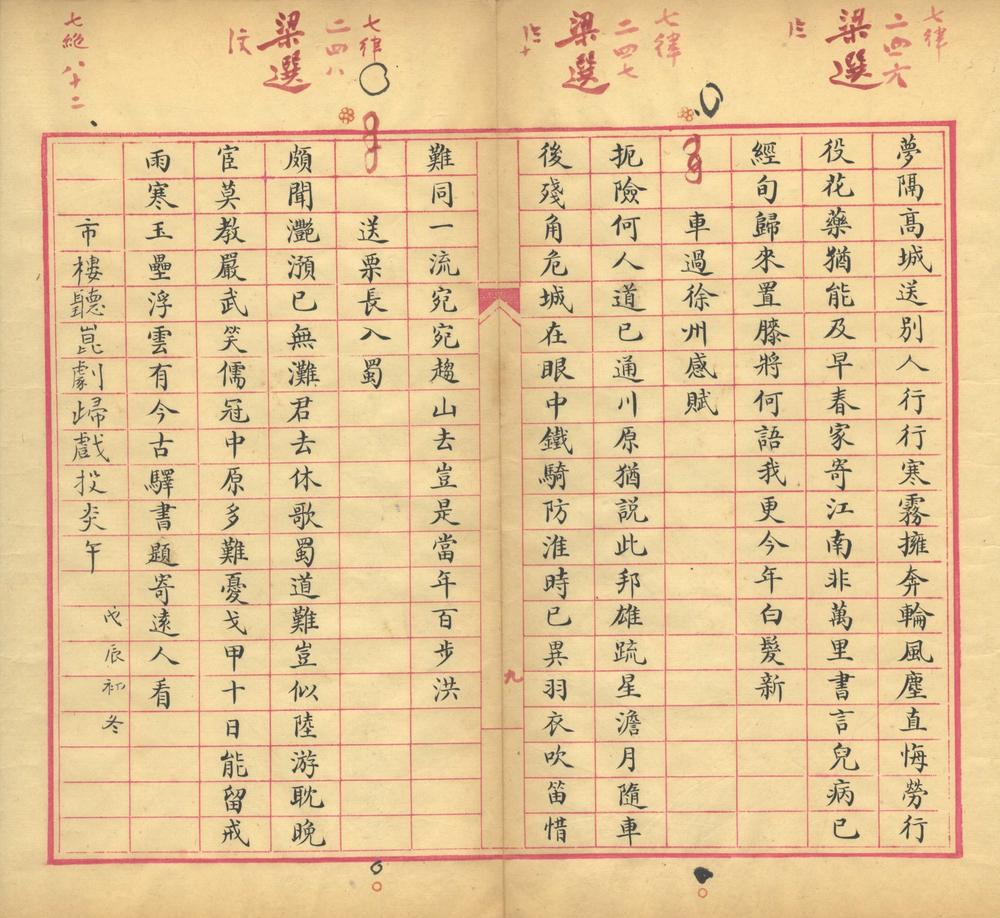 七律
二四六
梁選
夢隔高城送別人行行寒霧擁奔輪風塵直悔勞行
役花藥猶能及早春家寄江南非萬里書言兒病已
經旬歸來置膝將何語我更今年白髮新
七律
二四七
梁選
車過徐州感賦
扼險何人道已通川原猶說此邦雄疏星澹月隨車
後殘角危城在眼中鐵騎防淮時已異羽衣吹笛惜
九
難同一流宛宛趨山去豈是當年百步洪
七律
二四八
梁選
送栗長入蜀
頗聞灩澦已無灘君去休歌蜀道難豈似陸游耽晚
宦莫教嚴武笑儒冠中原多難憂戈甲十日能留戒
雨寒玉壘浮雲有今古驛書題寄遠人看
七絕
八十二
市樓聽崑劇歸戲投炎午 戊辰初冬